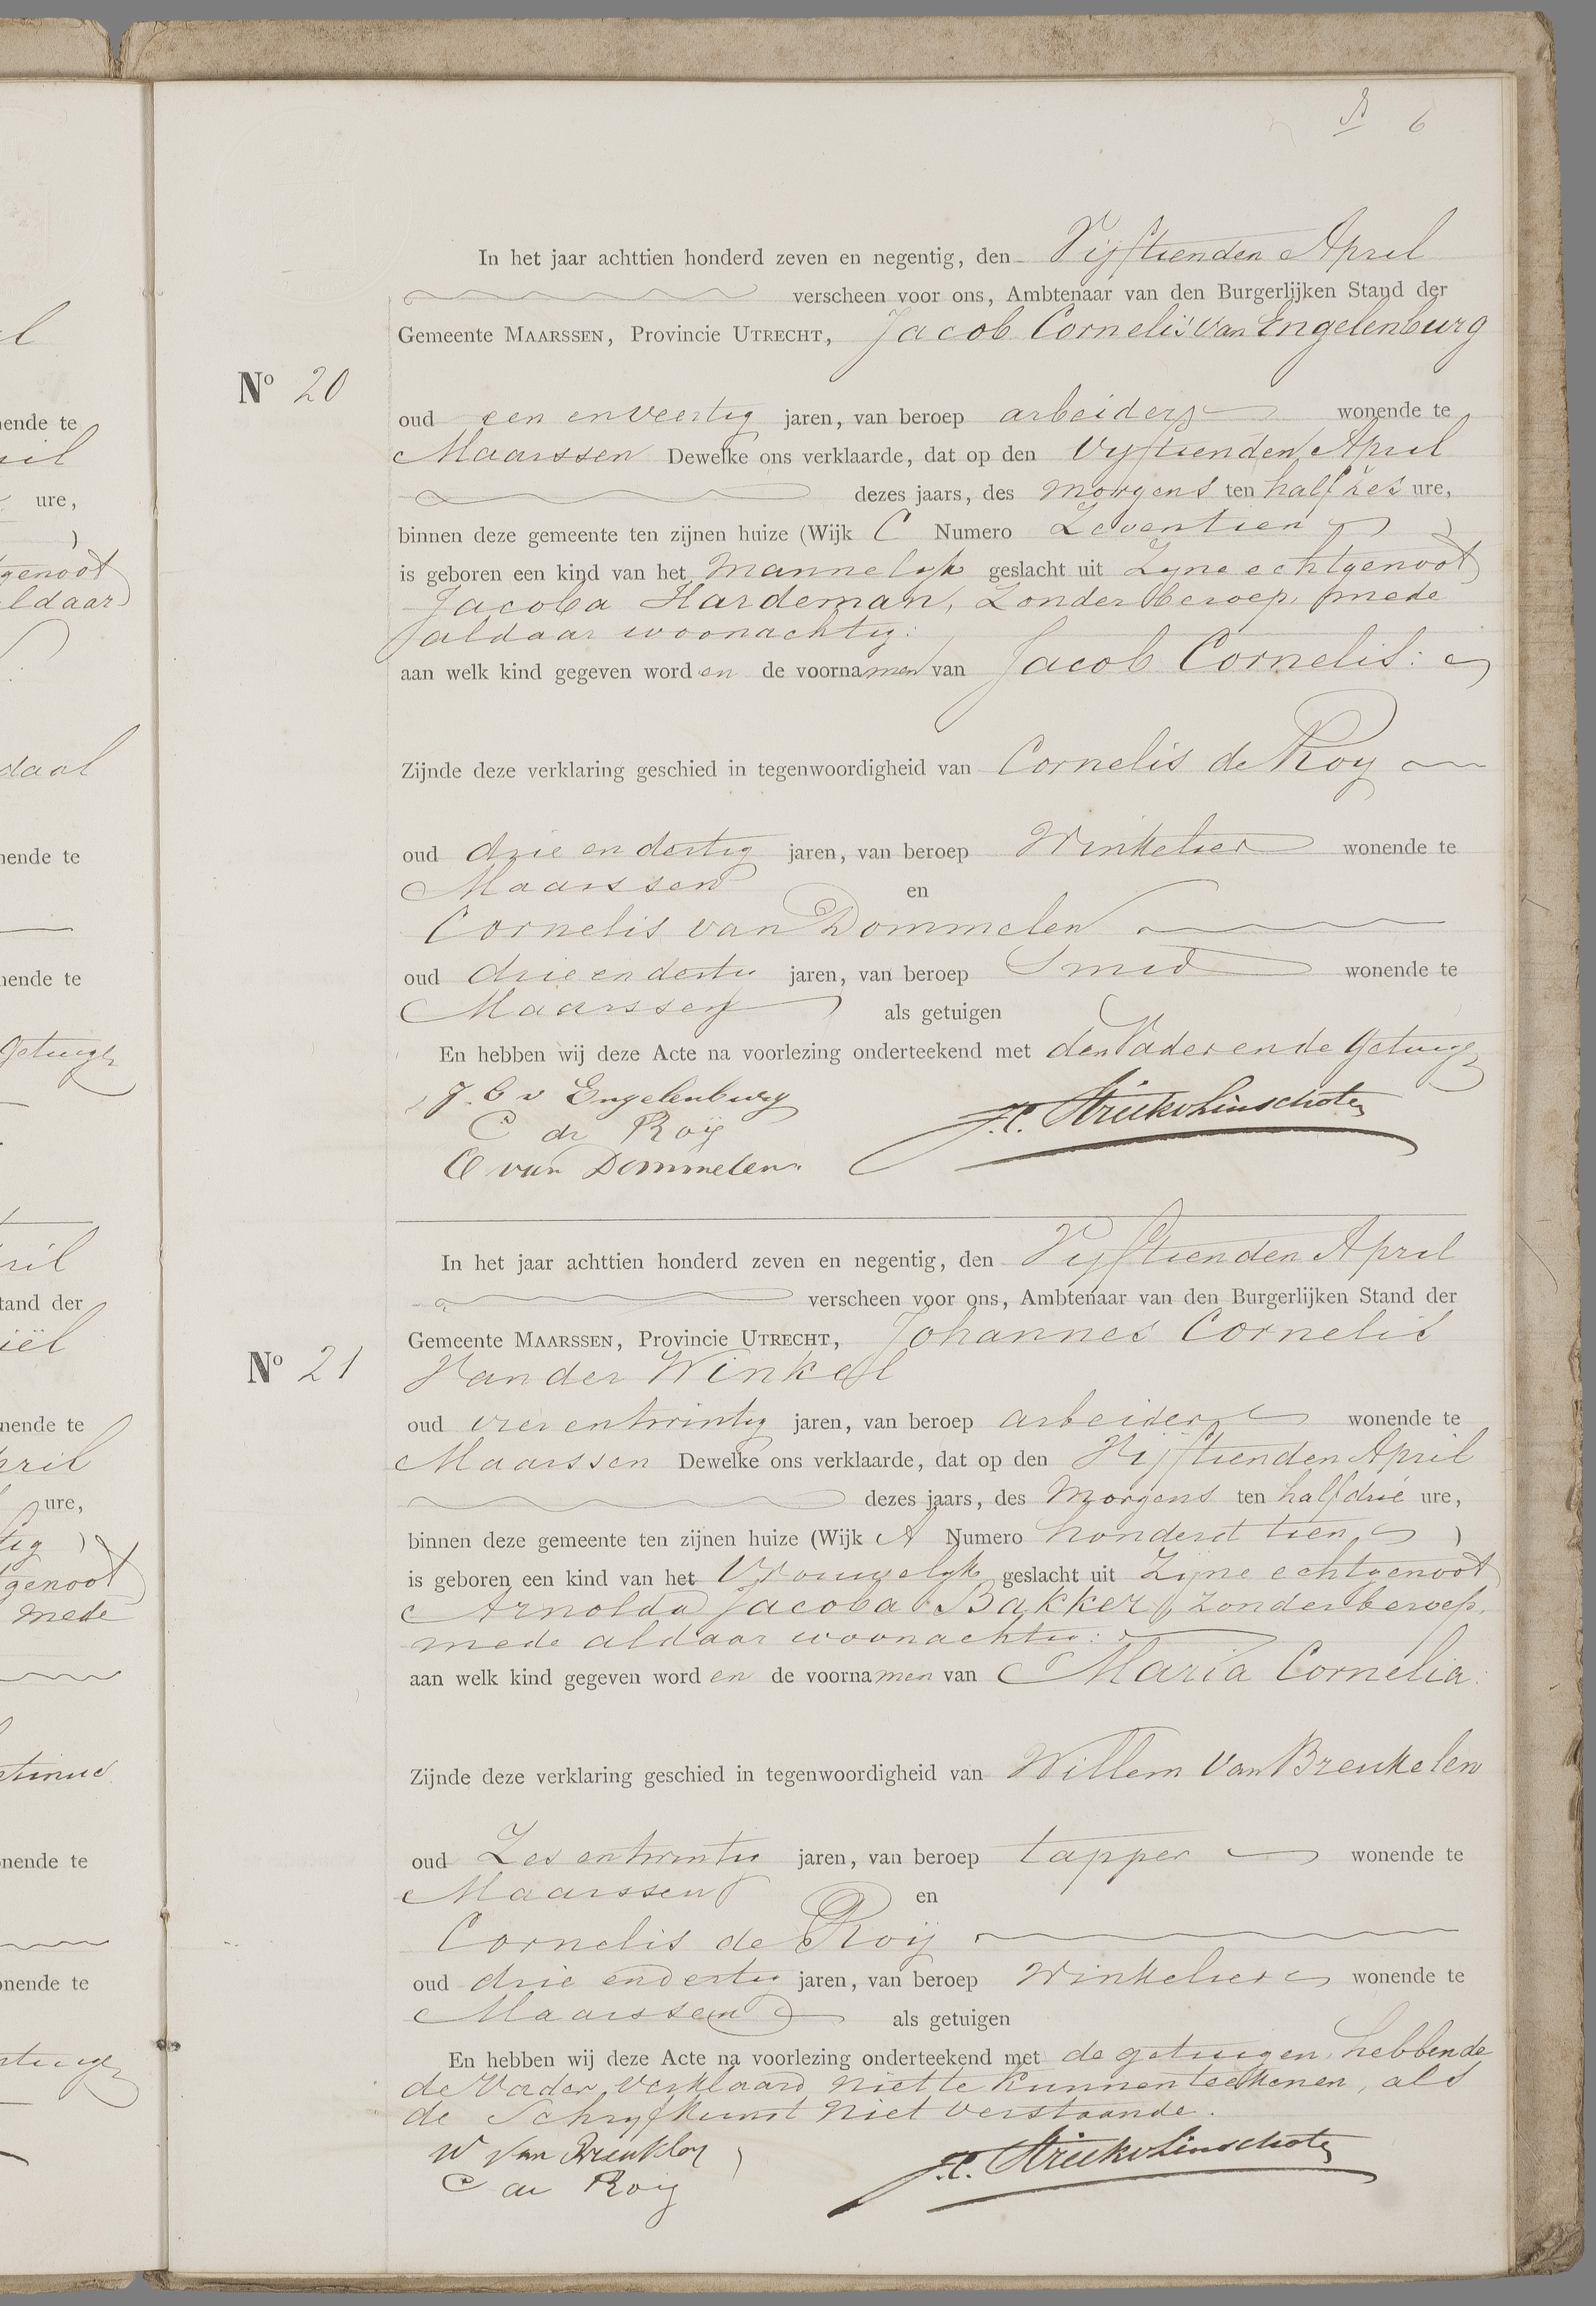 6
In het jaar achttien honderd zeven en negentig, den Vijftienden April
verscheen voor ons, Ambtenaar van den Burgerlijken Stand der
Gemeente MAARSSEN, Provincie UTRECHT, Jacob Cornelis van Engelenburg
No 20
oud een en veertig jaren, van beroep arbeider wonende te
Maarssen Dewelke ons verklaarde, dat op den Vyftienden April
dezes jaars, des morgens ten half zes ure,
binnen deze gemeente ten zijnen huize (Wijk C Numero Zeventien )
is geboren een kind van het Mannelijk geslacht uit Zyne echtgenoot
Jacoba Hardeman, Zonder beroep, mede
aldaar woonachtig:
aan welk kind gegeven worden de voornamen van Jacob Cornelis:
Zijnde deze verklaring geschied in tegenwoordigheid van Cornelis de Roy
oud drie en dertig jaren, van beroep Winkelier wonende te
Maarssen en
Cornelis van Dommelen
oud drie en dertig jaren, van beroep Smid wonende te
Maarssen als getuigen
En hebben wij deze Acte na voorlezing onderteekend met den Vader en de Getuigen
J. C v Engelenburg
C de Roij
C van Dommelen
J.C. Strick v Linschoten
In het jaar achttien honderd zeven en negentig, den Vyftienden April
verscheen voor ons, Ambtenaar van den Burgerlijken Stand der
Gemeente MAARSSEN, Provincie UTRECHT, Johannes Cornelis
No 21 Van der Winkel
oud vier en twintig jaren, van beroep arbeider wonende te
Maarssen Dewelke ons verklaarde, dat op den Vijftienden April
dezes jaars, des Morgens ten half drie ure,
binnen deze gemeente ten zijnen huize (Wijk A Numero honderd tien )
is geboren een kind van het Vrouwelyk geslacht uit Zijne echtgenoot
Arnolda Jacoba Bakker, Zonder beroep,
mede aldaar woonachtig:
aan welk kind gegeven worden de voornamen van Maria Cornelia:
Zijnde deze verklaring geschied in tegenwoordigheid van Willem van Breukelen
oud Zes en twintig jaren, van beroep tapper wonende te
Maarssen en
Cornelis de Roij
oud drie en dertig jaren, van beroep Winkelier wonende te
Maarssen als getuigen
En hebben wij deze Acte na voorlezing onderteekend met de getuigen, hebbende
de Vader verklaard niet te kunnen teekenen, als
de Schryfkunst niet verstaande.
W van Breuklen
C de Roij
J.C. Strick v Linschoten